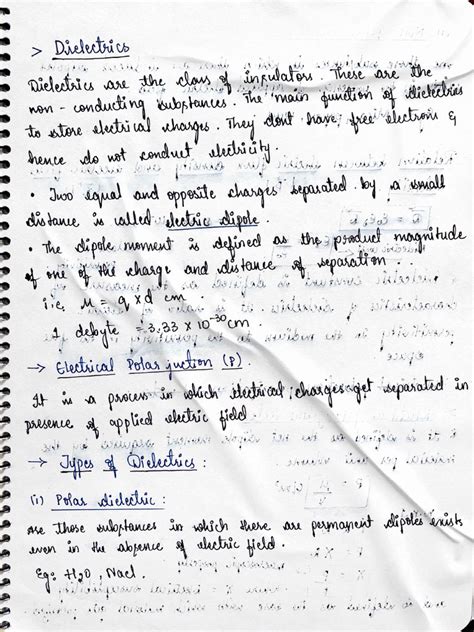 > Dielectrics
Dielectrics are the class of insulators. These are the
non-conducting substances. The main function of dielectrics
to store electrical charges. They dont have free electrons &
hence do not conduct electricity.
• Two equal and opposite charges separated by a small
distance is called electric dipole.
• The dipole moment is defined as the product magnitude
of one of the charge and distance of separation.
i.e, μ = q x d cm.
1 debyte = 3.33 x 10⁻³⁰ cm.
→ Electrical Polar juction (P).
It is a process in which electrical charges get separated in
presence of applied electric field
→ Types of Dielectrics :
(i) Polar dielectric :
are those substances in which there are permanent dipoles exists
even in the absence of electric field.
Eg: H₂O, Nacl.